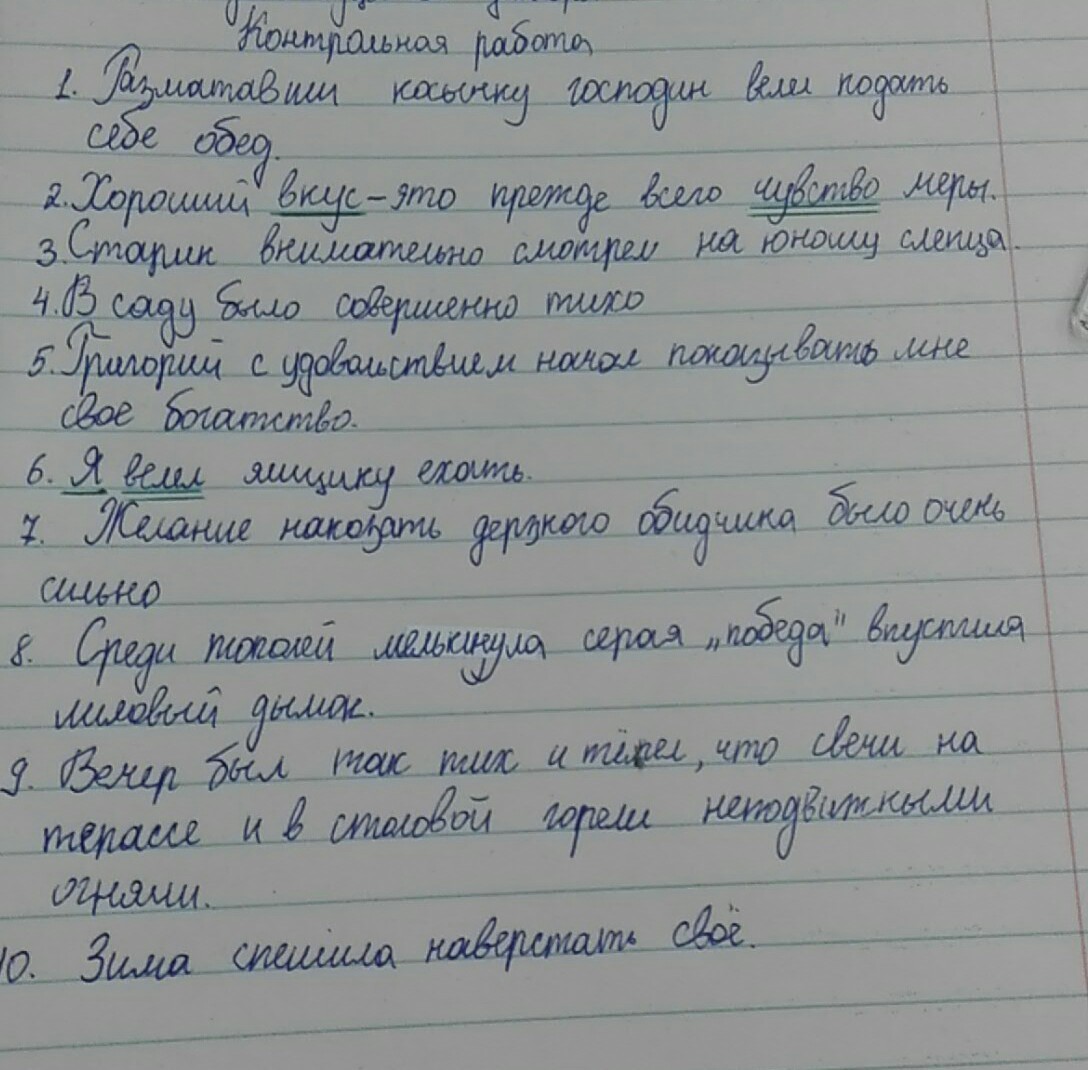 Контрольная работа
1. Разматавши косынку господин велел подать
себе обед.
2. Хороший вкус – это прежде всего чувство меры.
3. Старик внимательно смотрел на юношу слепца.
4. В саду было совершенно тихо
5. Григорий с удовольствием начал показывать мне
своё богатство.
6. Я велел ямщику ехать.
7. Желание наказать дерзкого обидчика было очень
сильно
8. Среди тополей мелькнула серая „победа" впустила
лиловый дымок.
9. Вечер был так тих и тепел, что свечи на
терассе и в столовой горели неподвижными
огнями.
10. Зима спешила наверстать своё.